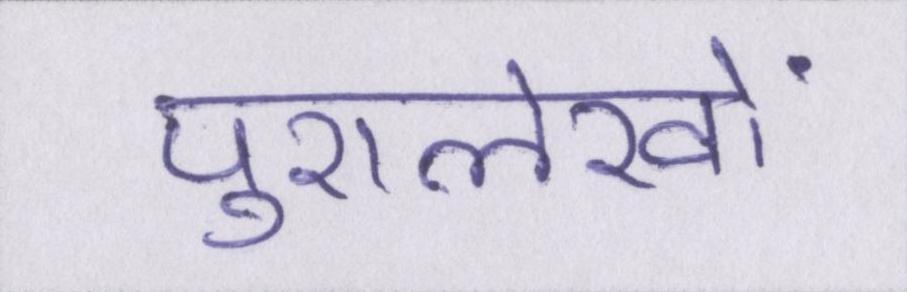 पुरालेखों